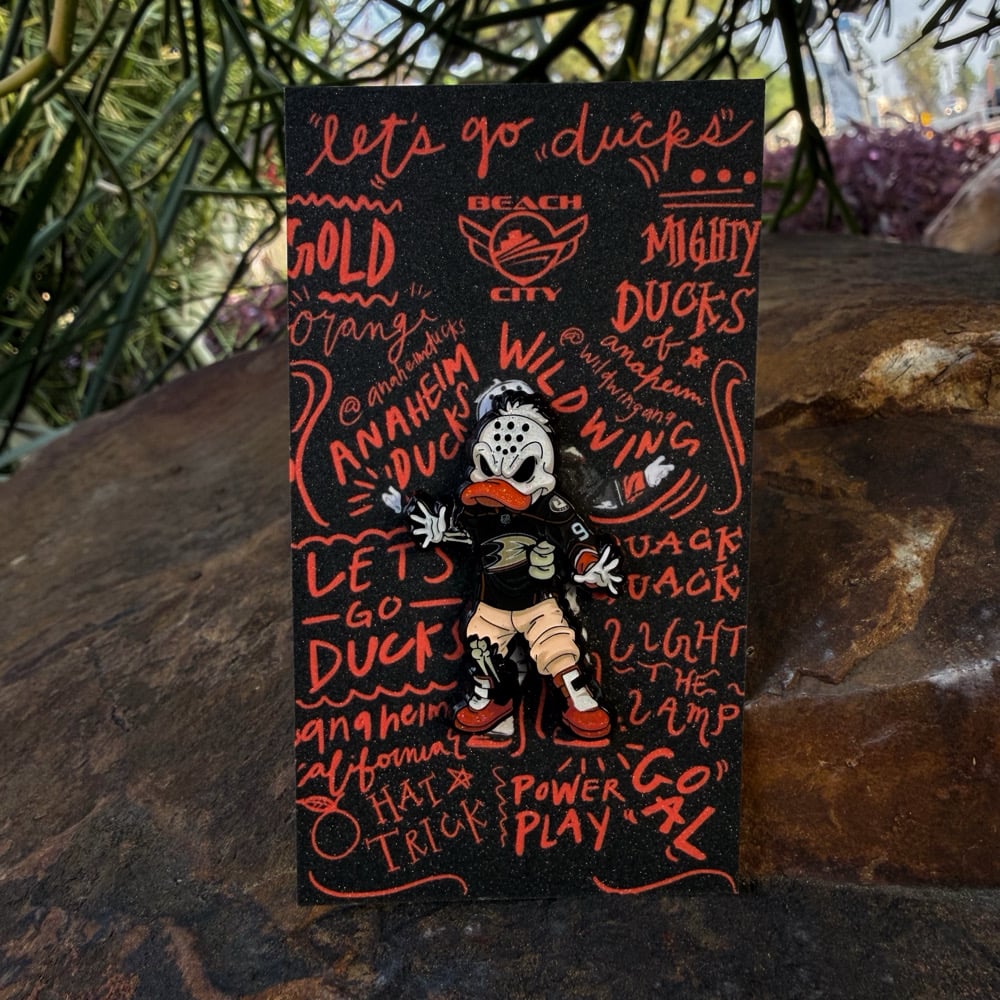 "let's go "ducks"
BEACH
CITY
GOLD
orange
@anaheimducks
ANAHEIM
DUCKS
WILDWING
@wildwingana
MIGHTY
DUCKS
of
anaheim
9
LETS
GO
DUCKS
QUACK
QUACK
LIGHT
THE
LAMP
anaheim
california
HAT
TRICK
POWER
PLAY
"GOAL"